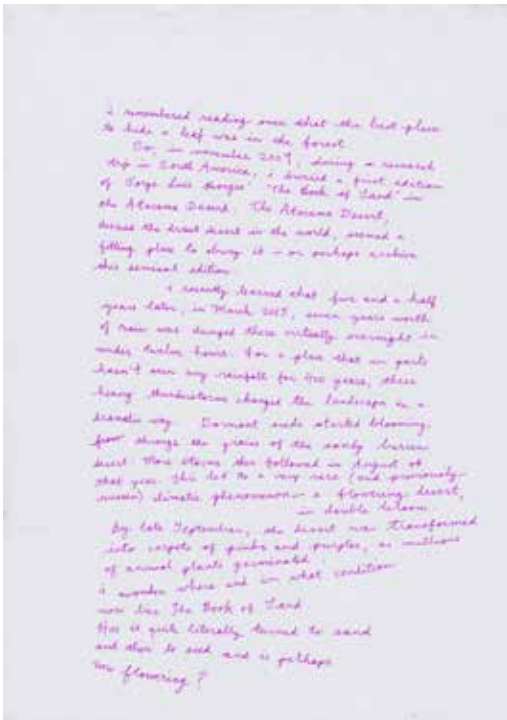 I remembered reading once that the best place
to hide a leaf was in the forest.
So, in november 2009, during a research
trip in South America, I buried a first edition
of Jorge Luis Borges' 'The Book of Sand' in
the Atacama Desert. The Atacama Desert,
deemed the driest desert in the world, seemed a
fitting place to bury it – or perhaps archive
this seminal edition.
I recently learned that five and a half
years later, in March 2015, seven years worth
of rain was dumped there virtually overnight in
under twelve hours. For a place that in parts
hasn't seen any rainfall for 400 years, these
heavy thunderstorms changed the landscape in a
dramatic way. Dormant seeds started blooming
from the grains of the sandy barren
desert. More storms then followed in August of
that year. This led to a very rare (and previously
unseen) climatic phenomenon – a flowering desert,
in double bloom.
By late September, the desert was transformed
into carpets of pinks and purples, as millions
of annual plants germinated.
I wonder where and in what condition
now lies The Book of Sand
Has it quite literally turned to sand
and then to seed and is perhaps
now flowering?